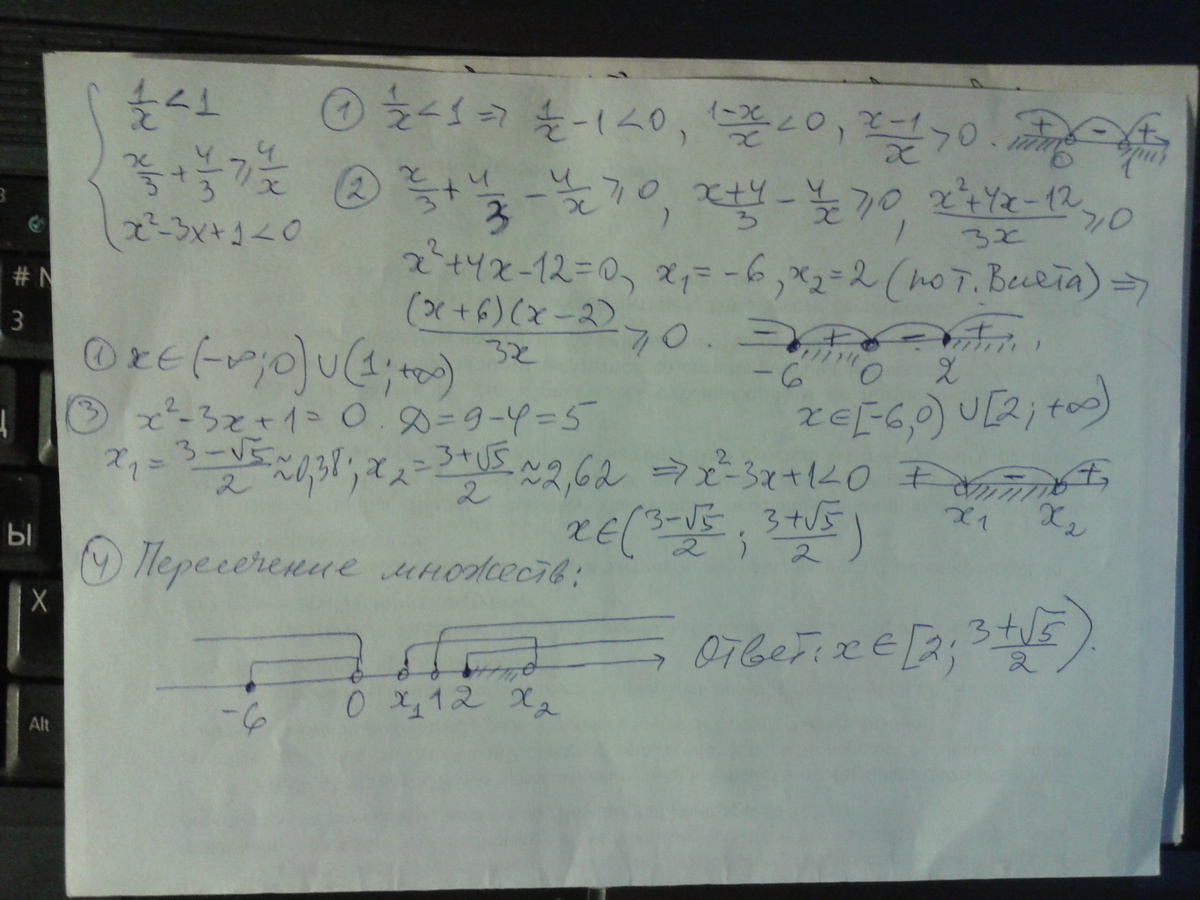 { 1/x < 1
x/3 + 4/3 ⩾ 4/x
x² - 3x + 1 < 0
① 1/x < 1 ⇒ 1/x - 1 < 0, (1-x)/x < 0, (x-1)/x > 0. + - +
0 1
② x/3 + 4/3 - 4/x ⩾ 0, (x+4)/3 - 4/x ⩾ 0, (x²+4x-12)/3x ⩾ 0
x² + 4x - 12 = 0, x₁ = -6, x₂ = 2 (по т. Виета) ⇒
(x+6)(x-2)/3x ⩾ 0. - + - + ,
-6 0 2
① x ∈ (-∞; 0) ∪ (1; +∞)
x ∈ [-6, 0) ∪ [2; +∞)
③ x² - 3x + 1 = 0. D = 9 - 4 = 5
x₁ = (3-√5)/2 ≈ 0,38; x₂ = (3+√5)/2 ≈ 2,62 ⇒ x² - 3x + 1 < 0 + - +
x₁ x₂
x ∈ ((3-√5)/2; (3+√5)/2)
④ Пересечение множеств:
-6 0 x₁ 1 2 x₂
Ответ: x ∈ [2; (3+√5)/2).
# N
3
Ы
X
Alt